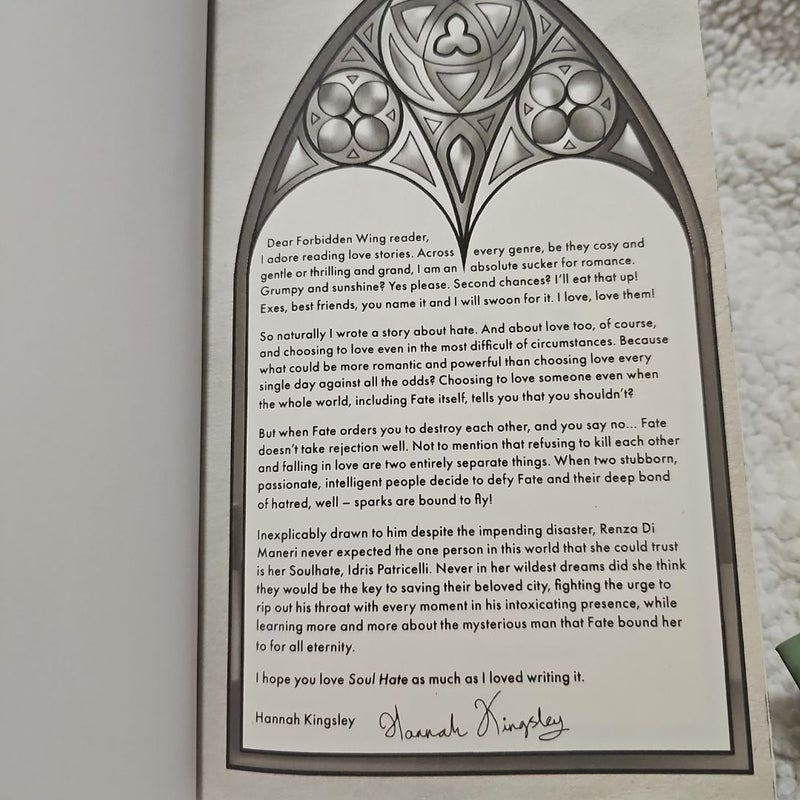 Dear Forbidden Wing reader,
I adore reading love stories. Across every genre, be they cosy and
gentle or thrilling and grand, I am an absolute sucker for romance.
Grumpy and sunshine? Yes please. Second chances? I'll eat that up!
Exes, best friends, you name it and I will swoon for it. I love, love them!
So naturally I wrote a story about hate. And about love too, of course,
and choosing to love even in the most difficult of circumstances. Because
what could be more romantic and powerful than choosing love every
single day against all the odds? Choosing to love someone even when
the whole world, including Fate itself, tells you that you shouldn't?
But when Fate orders you to destroy each other, and you say no... Fate
doesn't take rejection well. Not to mention that refusing to kill each other
and falling in love are two entirely separate things. When two stubborn,
passionate, intelligent people decide to defy Fate and their deep bond
of hatred, well – sparks are bound to fly!
Inexplicably drawn to him despite the impending disaster, Renza Di
Maneri never expected the one person in this world that she could trust
is her Soulhate, Idris Patricelli. Never in her wildest dreams did she think
they would be the key to saving their beloved city, fighting the urge to
rip out his throat with every moment in his intoxicating presence, while
learning more and more about the mysterious man that Fate bound her
to for all eternity.
I hope you love Soul Hate as much as I loved writing it.
Hannah Kingsley Hannah Kingsley